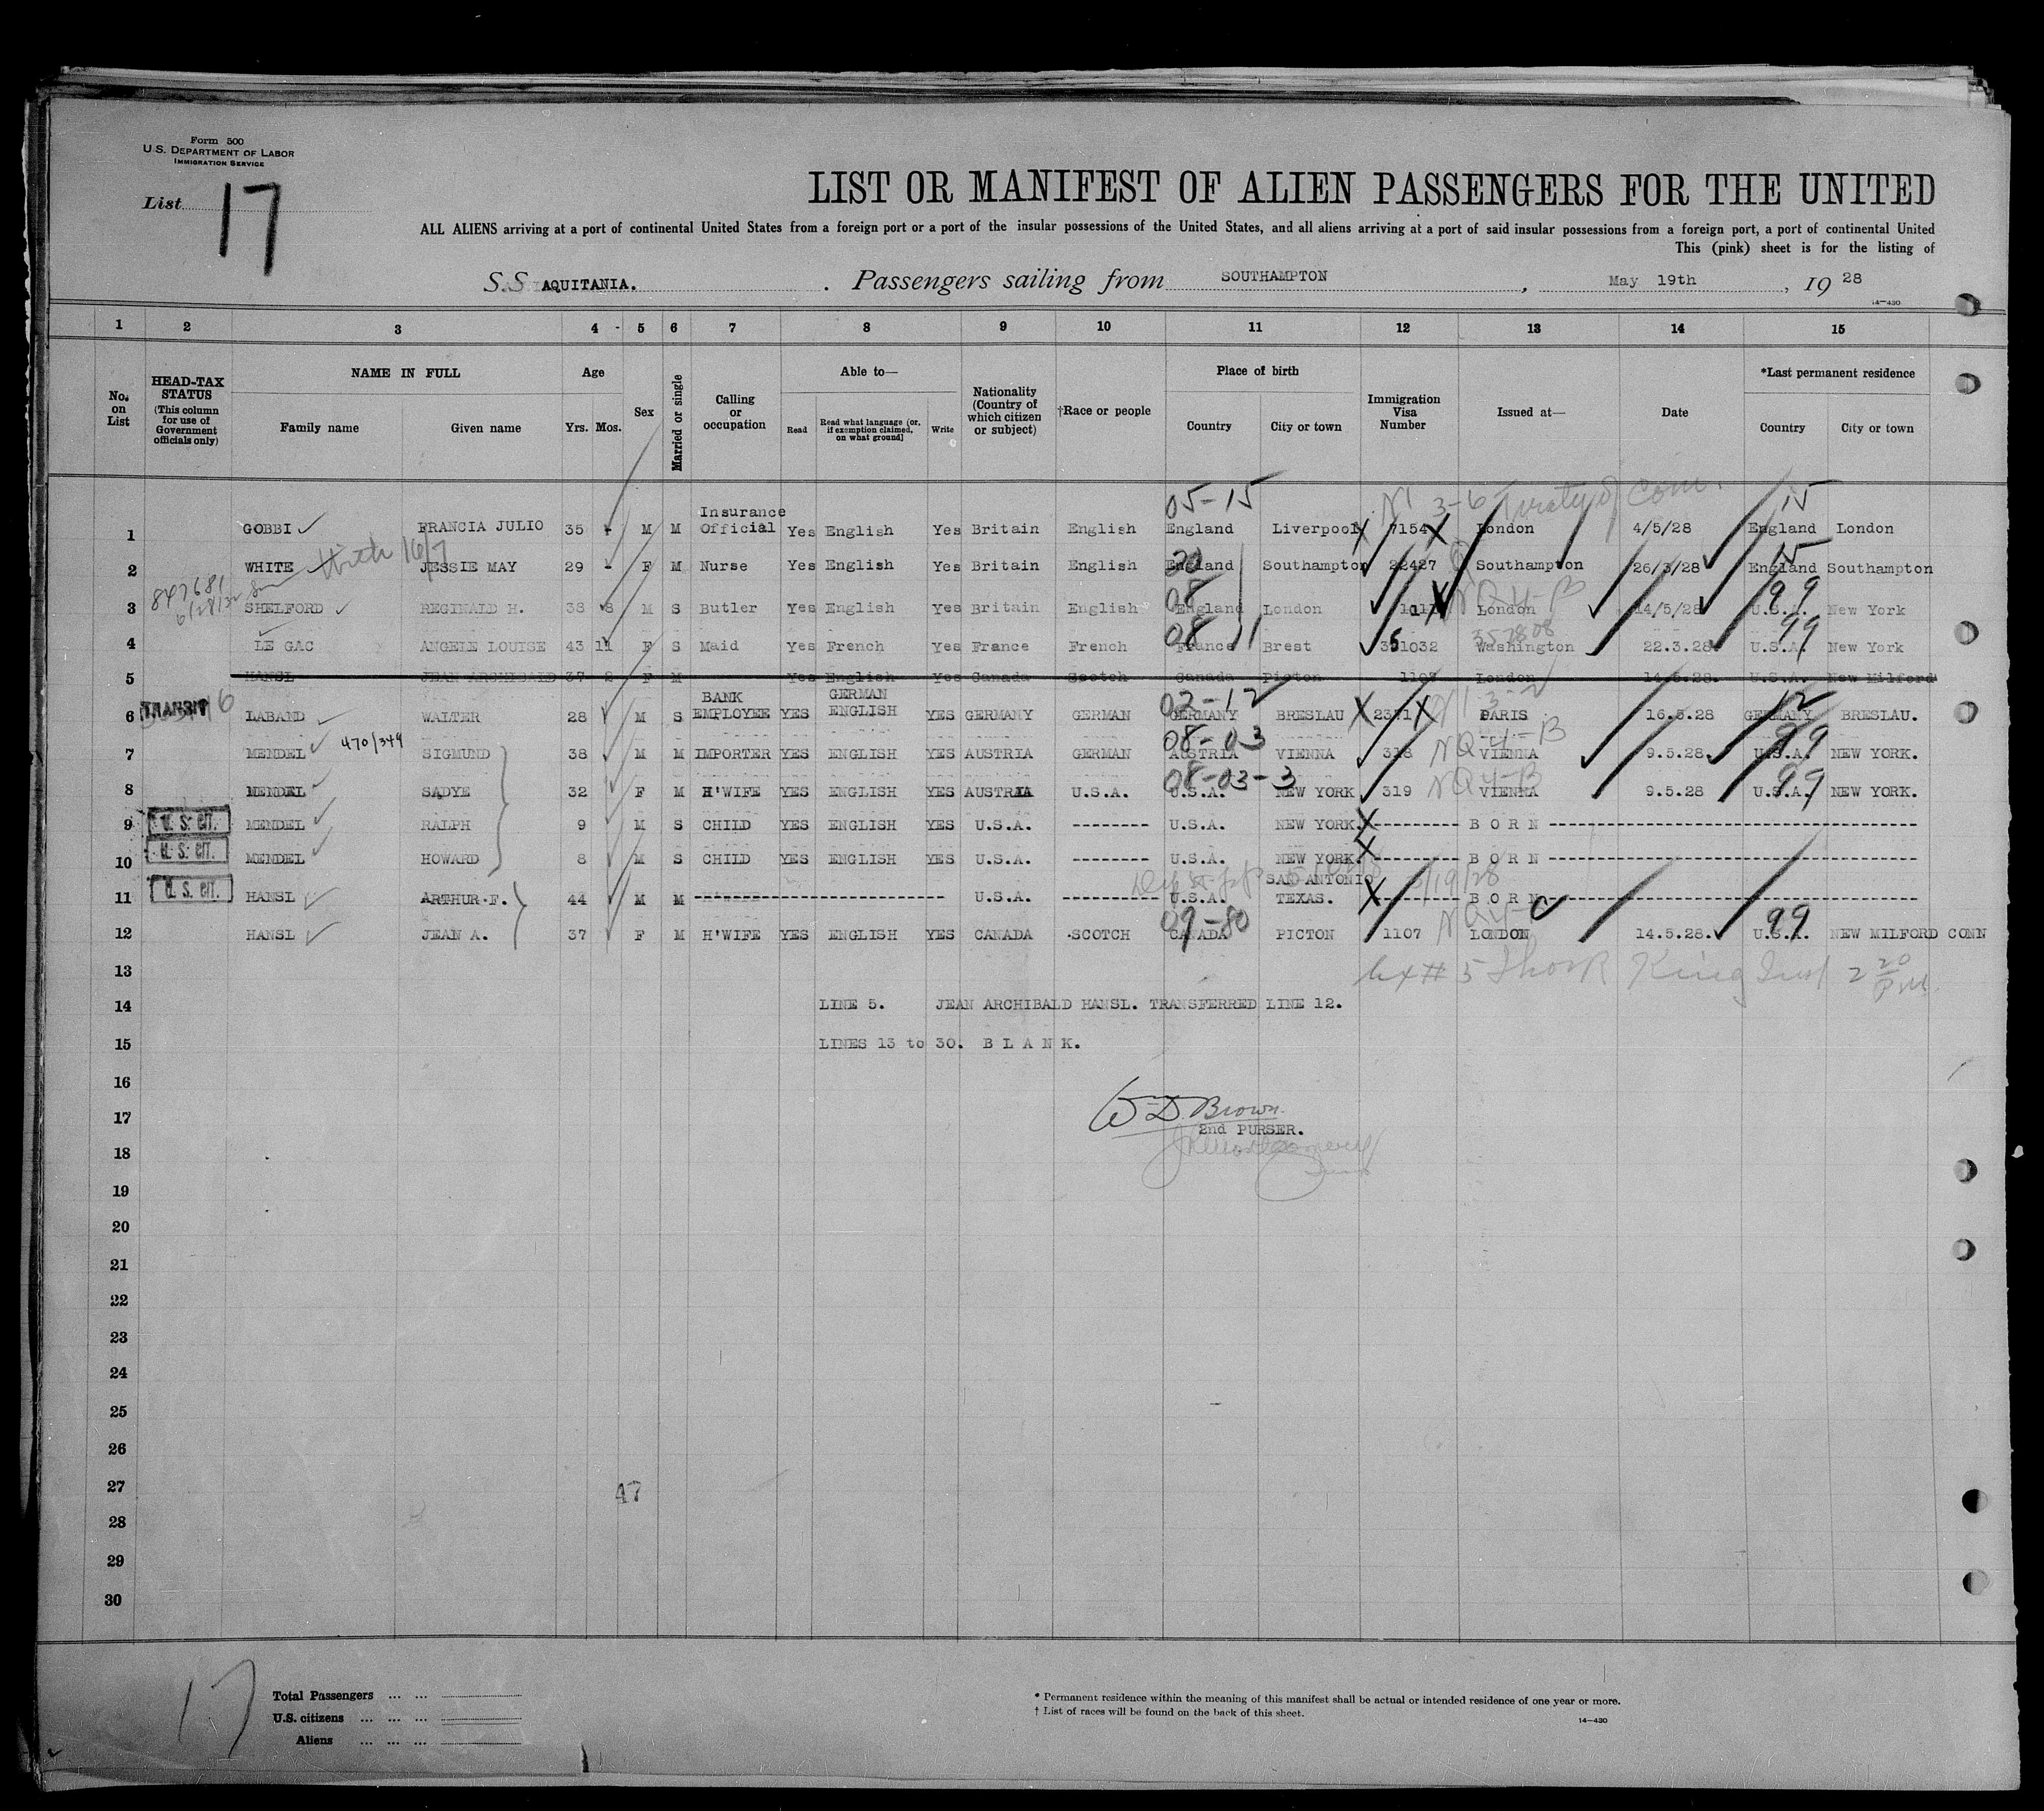 Form 500
U.S. DEPARTMENT OF LABOR
IMMIGRATION SERVICE
List 17
LIST OR MANIFEST OF ALIEN PASSENGERS FOR THE UNITED
ALL ALIENS arriving at a port of continental United States from a foreign port or a port of the insular possessions of the United States, and all aliens arriving at a port of said insular possessions from a foreign port, a port of continental United
This (pink) sheet is for the listing of
S.S AQUITANIA. . Passengers sailing from SOUTHAMPTON , May 19th , 19 28
14-430
1 2 3 4 5 6 7 8 9 10 11 12 13 14 15
No. on List
HEAD-TAX STATUS (This column for use of Government officials only)
NAME IN FULL
Family name Given name
Age
Yrs. Mos.
Sex
Married or single
Calling or occupation
Able to—
Read Read what language (or, if exemption claimed, on what ground) Write
Nationality (Country of which citizen or subject)
†Race or people
Place of birth
Country City or town
Immigration Visa Number
Issued at—
Date
*Last permanent residence
Country City or town
05-15 3-6 Treaty of Com. 15
1 GOBBI FRANCIA JULIO 35 - M M Insurance Official Yes English Yes Britain English England Liverpool 7154 London 4/5/28 England London
with 16/7 20 15
2 WHITE JESSIE MAY 29 - F M Nurse Yes English Yes Britain English England Southampton 22427 Southampton 26/3/28 England Southampton
847681 6/28/32 08 NQ 4-B 99
3 SHELFORD REGINALD H. 38 8 M S Butler Yes English Yes Britain English England London London 14/5/28 U.S.A. New York
08 11 357808 99
4 LE GAC ANGELE LOUISE 43 11 F S Maid Yes French Yes France French France Brest 351032 Washington 22.3.28. U.S.A. New York
5 HANSL JEAN ARCHIBALD 37 2 F M Yes English Yes Canada Scotch Canada Picton 1107 London 14.5.28. U.S.A. New Milford
TRANSIT 02-12 3-2 12
6 LABAND WALTER 28 M S BANK EMPLOYEE YES GERMAN ENGLISH YES GERMANY GERMAN GERMANY BRESLAU PARIS 16.5.28 GERMANY BRESLAU.
470/349 08-03 NQ 4-B 99
7 MENDEL SIGMUND 38 M M IMPORTER YES ENGLISH YES AUSTRIA GERMAN AUSTRIA VIENNA 318 VIENNA 9.5.28 U.S.A. NEW YORK.
08-03-3 NQ4-B 99
8 MENDEL SADYE 32 F M H'WIFE YES ENGLISH YES AUSTRIA U.S.A. U.S.A. NEW YORK 319 VIENNA 9.5.28 U.S.A. NEW YORK.
9 U. S. CIT. MENDEL RALPH 9 M S CHILD YES ENGLISH YES U.S.A. -------- U.S.A. NEW YORK. --------- B O R N ---------
10 U. S. CIT. MENDEL HOWARD 8 M S CHILD YES ENGLISH YES U.S.A. -------- U.S.A. NEW YORK. --------- B O R N ---------
11 U. S. CIT. HANSL ARTHUR F. 44 M M --------- U.S.A. --------- U.S.A. SAN ANTONIO TEXAS. --------- B O R N ---------
09-80 99
12 HANSL JEAN A. 37 F M H'WIFE YES ENGLISH YES CANADA SCOTCH CANADA PICTON 1107 LONDON 14.5.28. U.S.A. NEW MILFORD CONN
13
14 LINE 5. JEAN ARCHIBALD HANSL. TRANSFERRED LINE 12.
15 LINES 13 to 30. B L A N K.
16
17 W D. Brown.
2nd PURSER.
18
19
20
21
22
23
24
25
26
27
47
28
29
30
17
Total Passengers ... ...
U.S. citizens ... ... ...
Aliens ... ... ...
* Permanent residence within the meaning of this manifest shall be actual or intended residence of one year or more.
† List of races will be found on the back of this sheet.
14-430